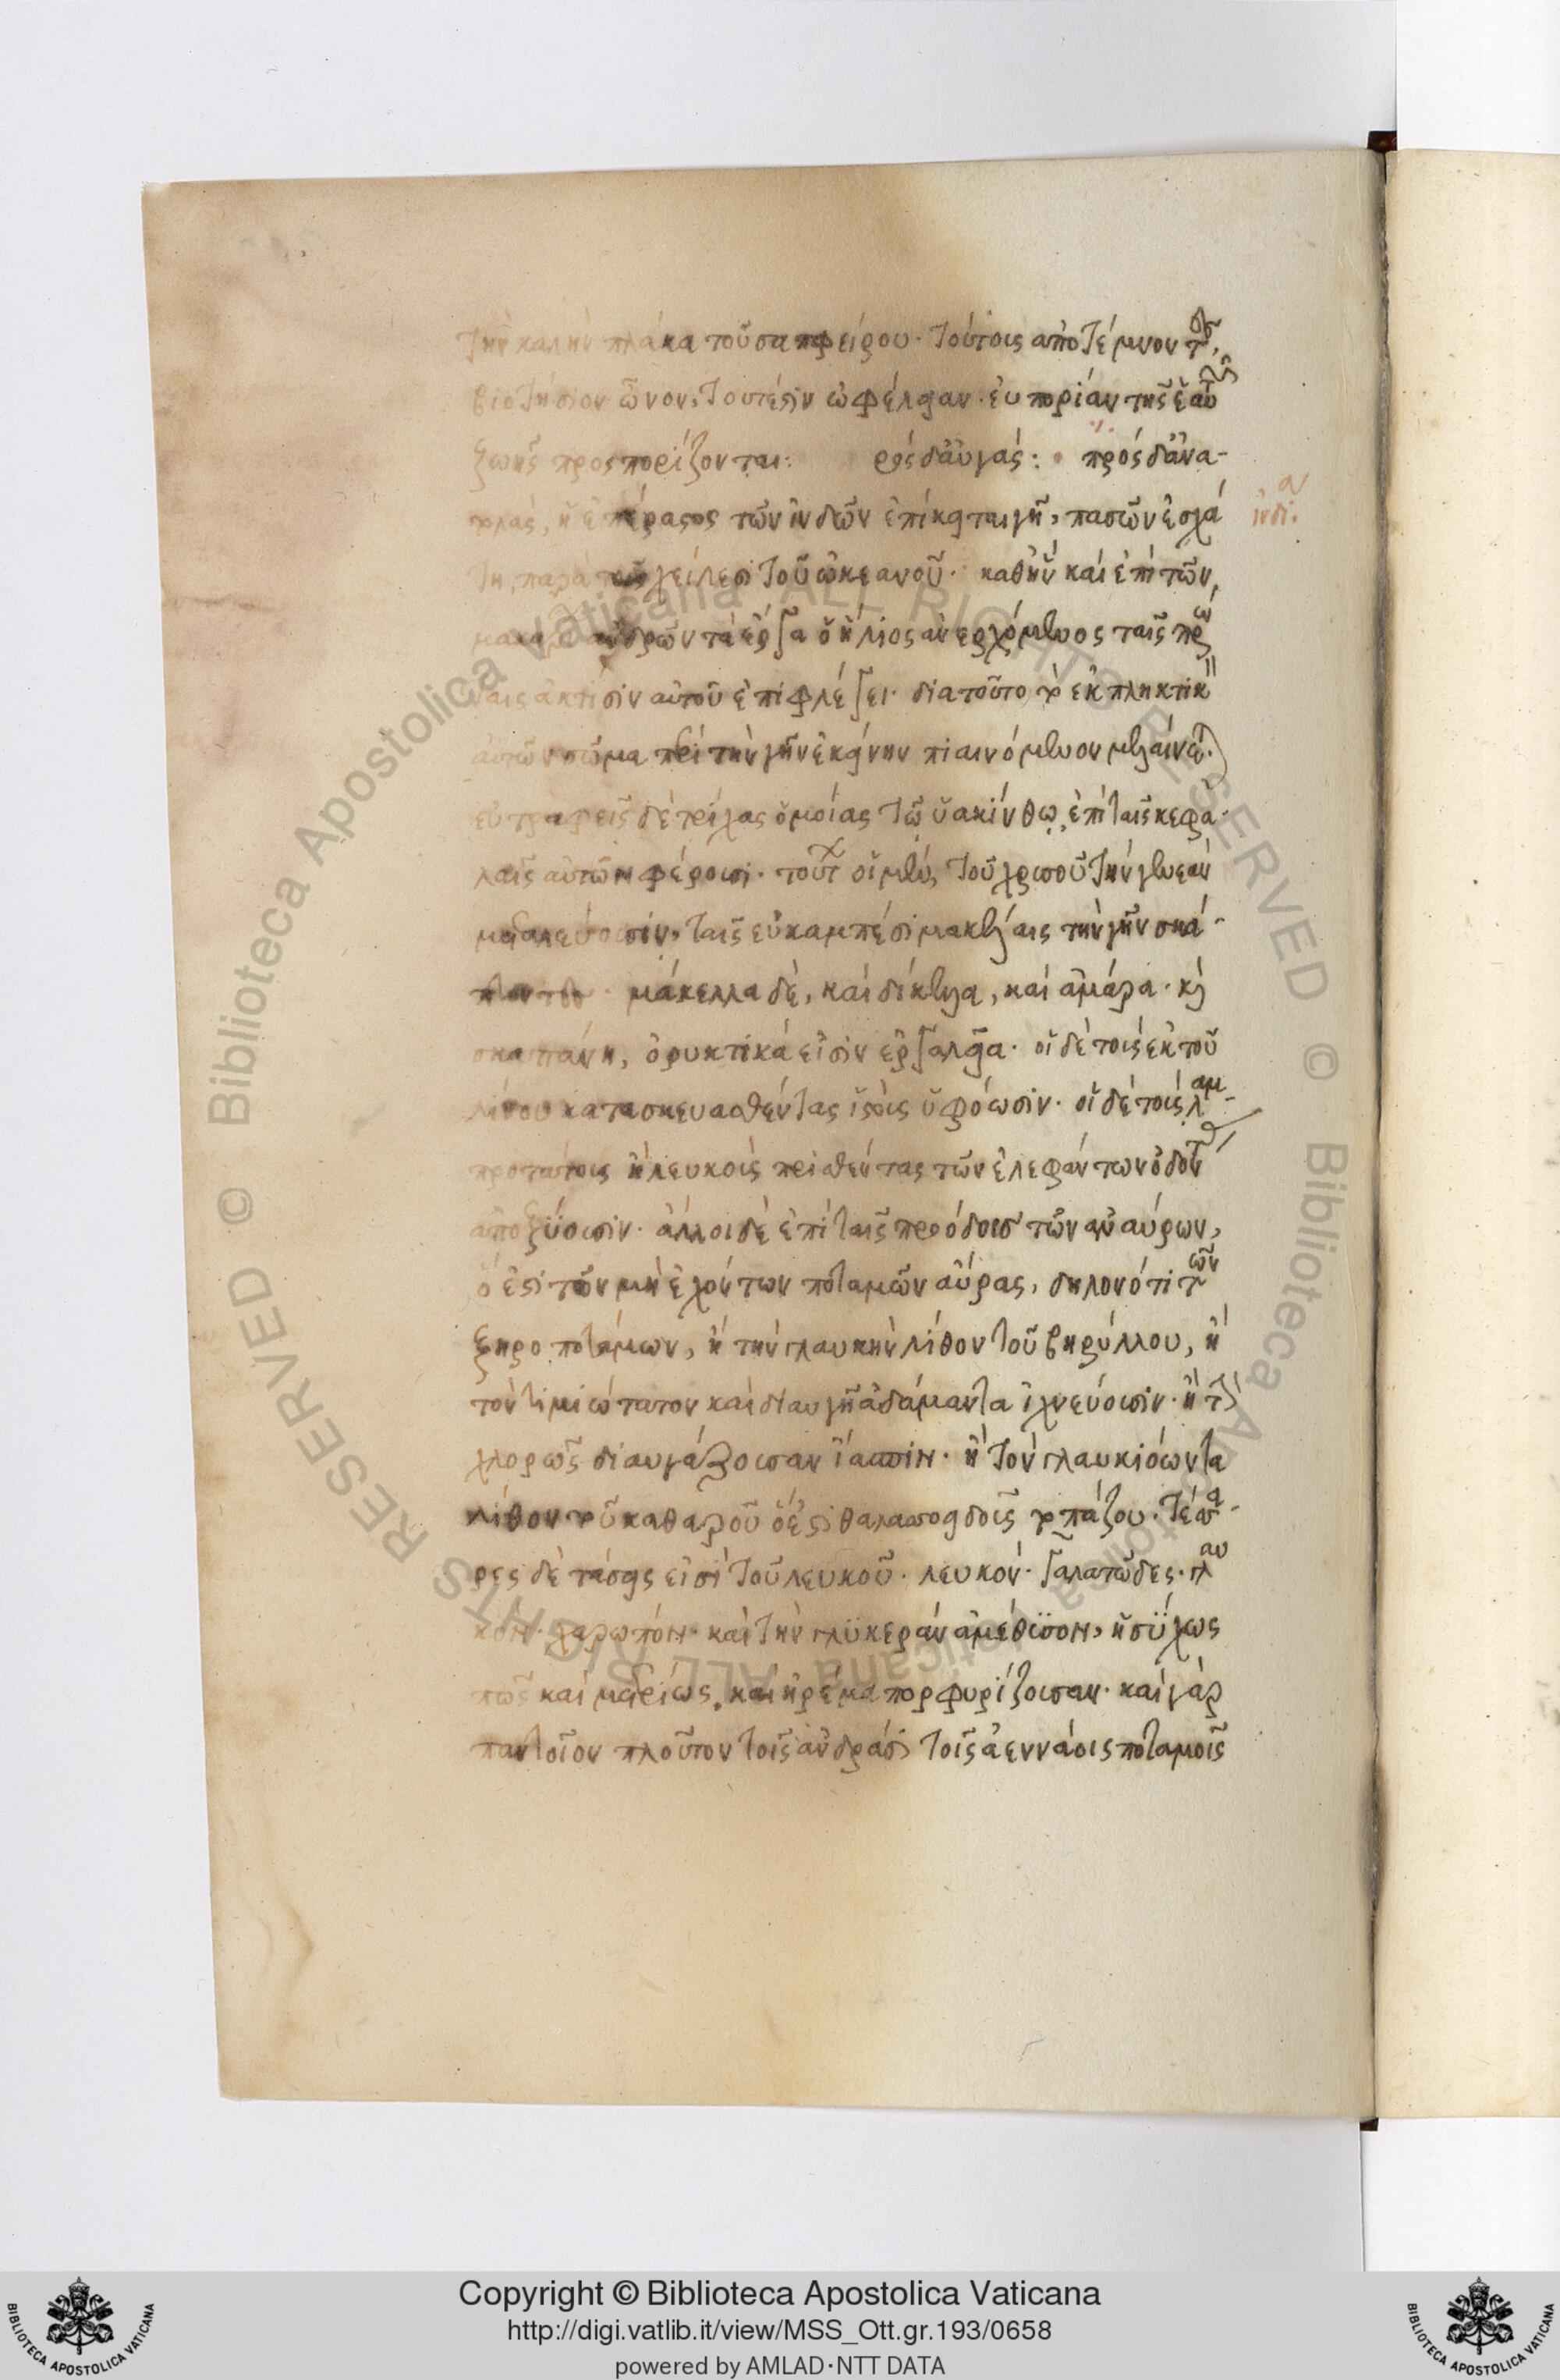 τὴν καλὴν πλάκα τοῦ σαπφείρου· τούτοις ἀποτέμνοντες,
βιοτήσιον ὦνον, τουτέστιν ὠφέλειαν· εὐπορίαν τῆς ἑαυτῶν
ζωῆς προσπορίζονται: ρὸς δ᾽ αὐγάς: πρὸς δ᾽ ἀνα-
τολὰς, ἡ ἐπέραστος τῶν ἰνδῶν ἐπίκειται γῆ, πασῶν ἐσχά
τη, παρὰ τοῖς χείλεσι τοῦ ὠκεανοῦ· καθ᾽ ἣν καὶ ἐπὶ τῶν,
ἀνδρῶν τὰ ἔργα ὁ ἥλιος ἀνερχόμενος ταῖς πρώ
ταις ἀκτῖσιν αὐτοῦ ἐπιφλέγει· διὰ τοῦτο τὸ ἐκπληκτικὸν
αὐτῶν σῶμα περὶ τὴν γῆν ἐκείνην πιαινόμενον μελαίνεται·
εὐτραφεῖς δὲ τρίχας ὁμοίας τῷ ὑακίνθῳ, ἐπὶ ταῖς κεφα-
λαῖς αὐτῶν φέρουσι· τούτων οἱ μὲν, τοῦ χρυσοῦ τὴν γένεσιν
μεταλλεύουσιν, ταῖς εὐκαμπέσι μακέλαις τὴν γῆν σκά-
πτοντες· μάκελλα δὲ, καὶ δίκελλα, καὶ ἀμάρα· καὶ
σκαπάνη, ὀρυκτικά εἰσιν ἐργαλεῖα· οἱ δὲ τοὺς ἐκ τοῦ
λίνου κατασκευασθέντας ἱστοὺς ὑφόωσιν· οἱ δὲ τοὺς λαμ-
προτάτους ἢ λευκοὺς πρισθέντας τῶν ἐλεφάντων ὀδόντας
ἀποξύουσιν· ἄλλοι δὲ ἐπὶ ταῖς προόδοις τῶν ἀναύρων,
ὅ ἐστι τῶν μὴ ἐχόντων ποταμῶν αὔρας, δηλονότι τῶν
ξηροποτάμων, ἢ τὴν γλαυκὴν λίθον τοῦ βηρύλλου, ἢ
τὸν τιμιώτατον καὶ διαυγῆ ἀδάμαντα ἰχνεύουσιν· ἢ τὴν
χλορῶς διαυγάζουσαν ἴασπιν· ἢ τὸν γλαυκιόωντα
λίθον τοῦ καθαροῦ ὅ ἐστι θαλασσοειδοῦς τοπάζου· τέσσα-
ρες δὲ τάσεις εἰσὶ τοῦ λευκοῦ· λευκόν· γαλατῶδες· γλαυ
κὸν· χαρωπόν· καὶ τὴν γλυκερὰν ἀμέθυσον, ἡσύχως
πῶς καὶ μετρίως, καὶ ἠρέμα πορφυρίζουσαν· καὶ γὰρ
παντοῖον πλοῦτον τοῖς ἀνδράσι τοῖς ἀεννάοις ποταμοῖς
Copyright © Biblioteca Apostolica Vaticana
http://digi.vatlib.it/view/MSS_Ott.gr.193/0658
powered by AMLAD·NTT DATA